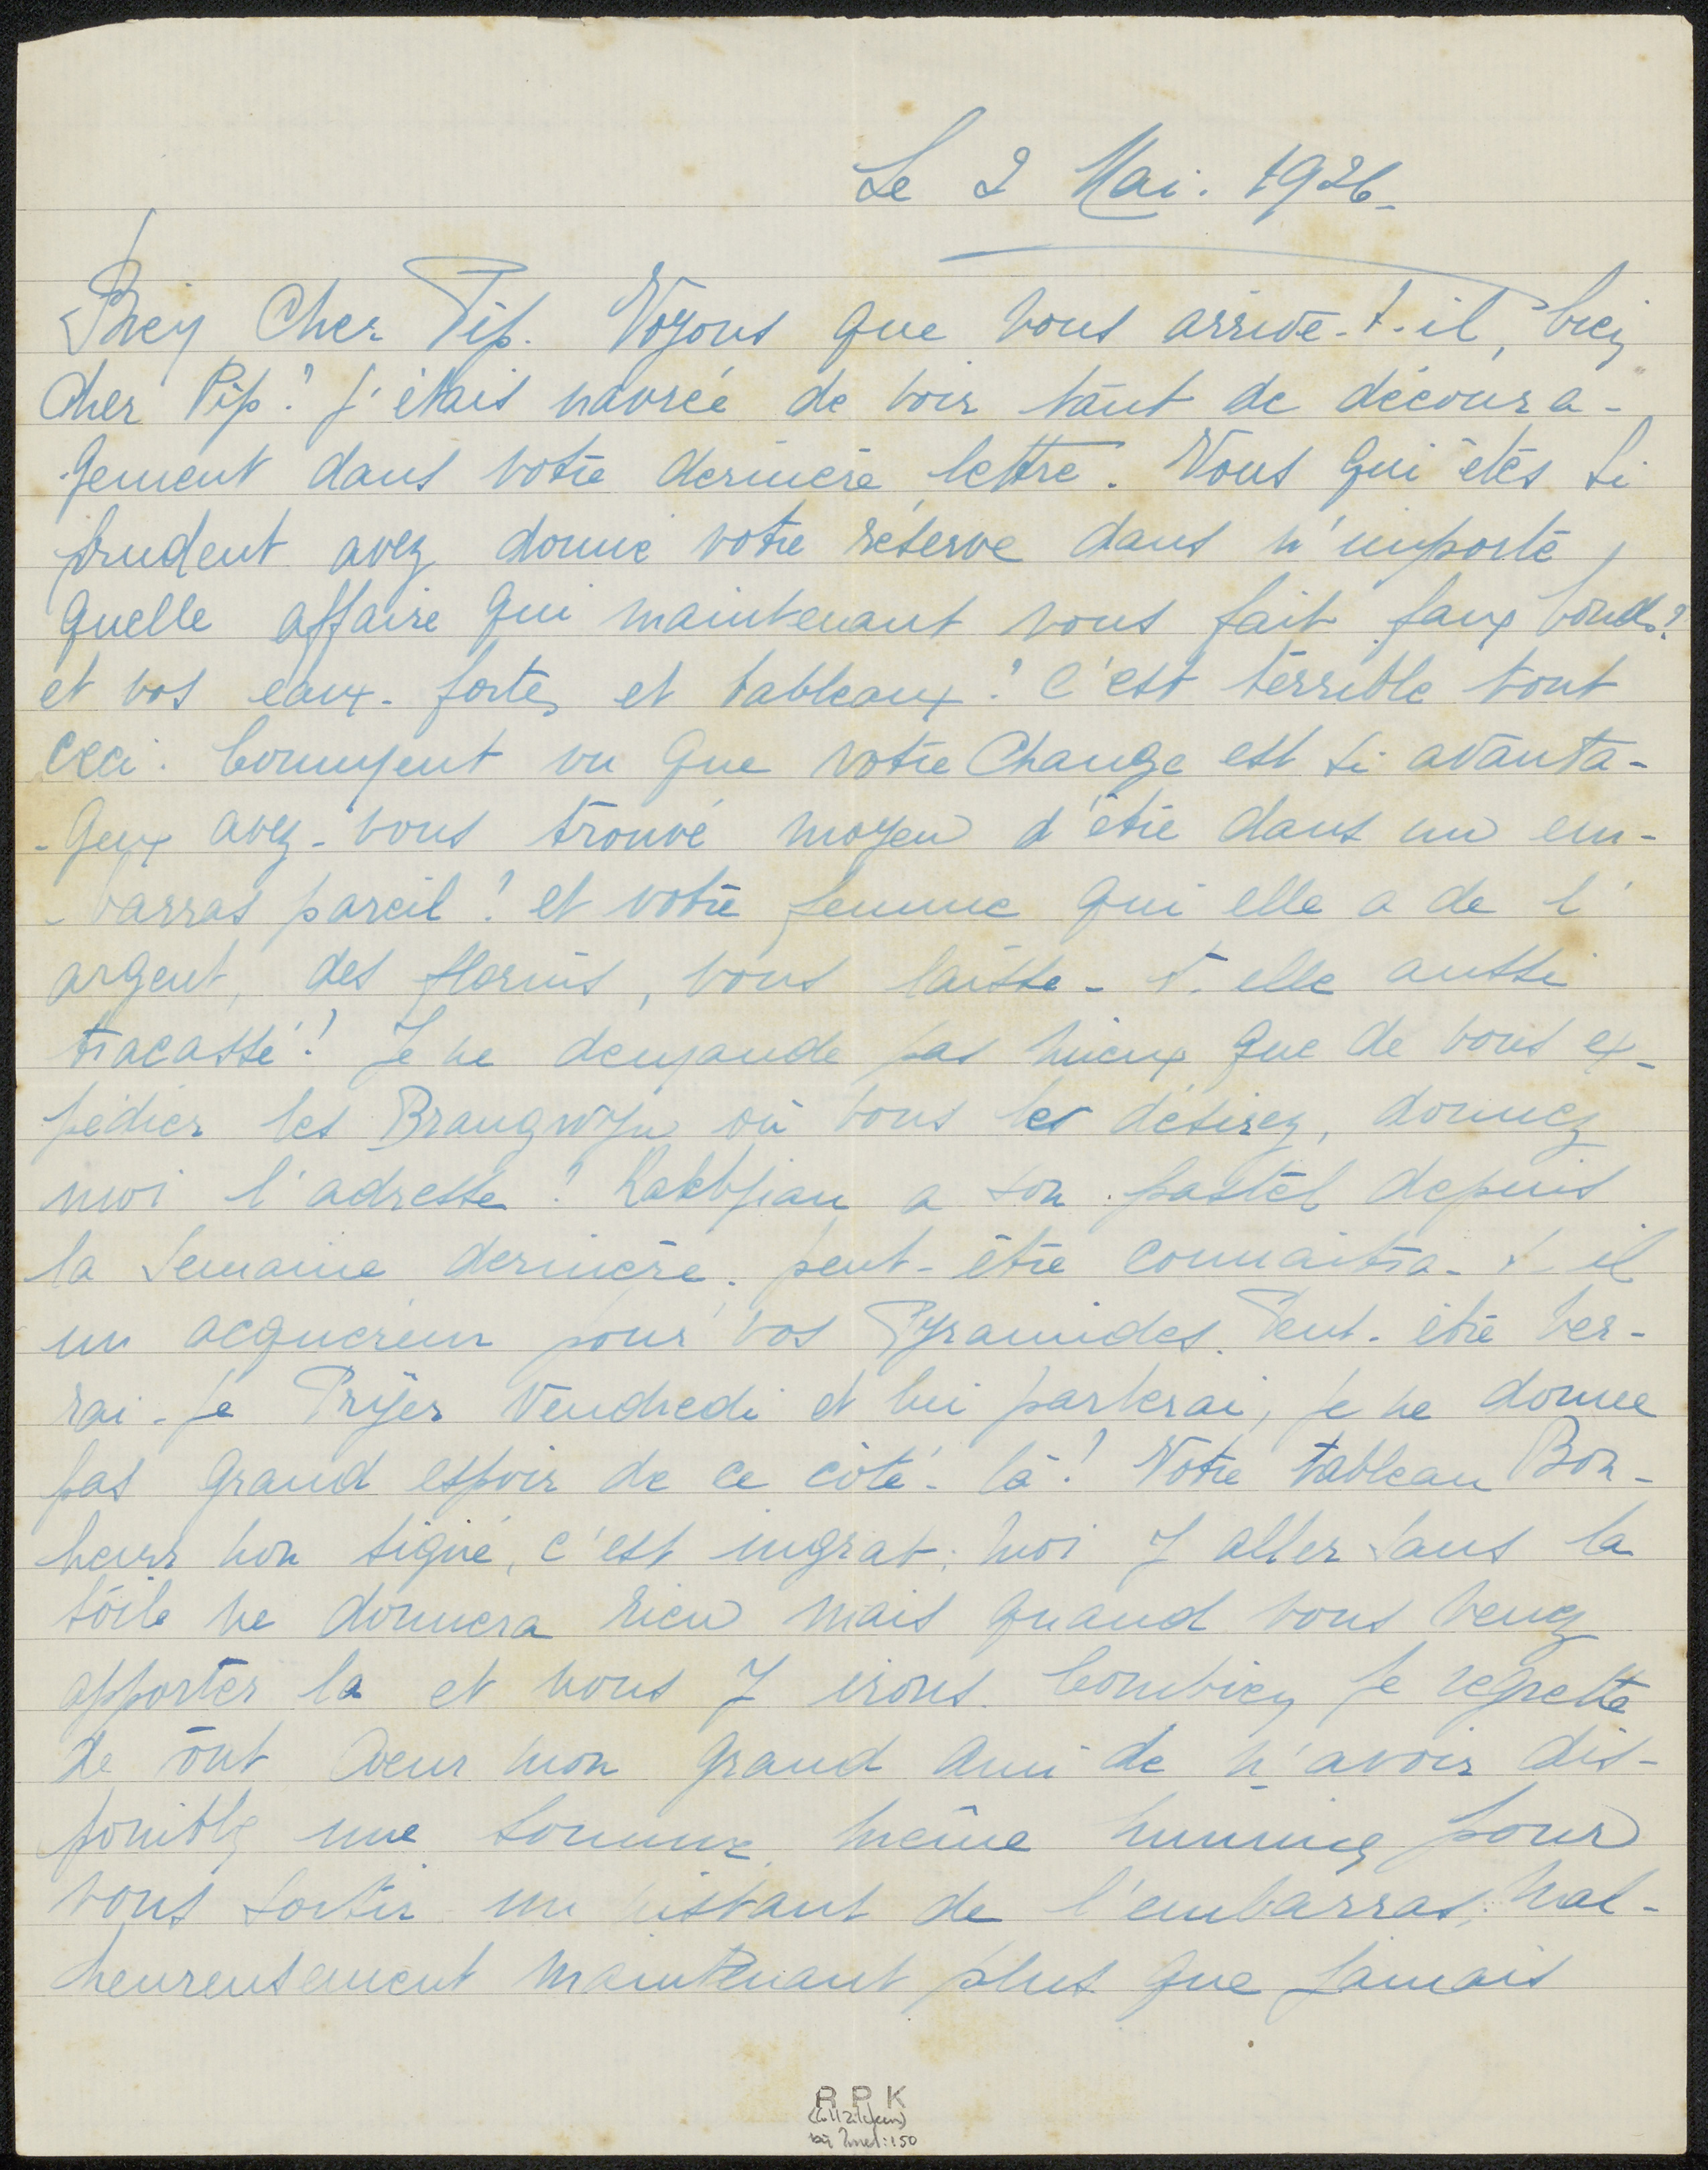 Le 2 Mai. 1926-
Bien Cher Pip. Voyons que vous arrive-t-il, bien
Cher Pip? J'étais navrée de voir tant de découra-
gement dans votre dernière lettre. Vous qui êtes si
prudent avez donné votre réserve dans n'importe
quelle affaire qui maintenant vous fait faux bond?
et vos eaux-fortes et tableaux? C'est terrible tout
ceci. Comment vu que votre Change est si avanta-
-geux avez-vous trouvé moyen d'être dans un em-
-barras pareil? et votre femme qui elle a de l'
argent, des florins, vous laisse-t-elle aussi
tracassé! Je ne demande pas mieux que de vous ex-
pédier les Brangwyn où vous les désirez, donnez
moi l'adresse? a son pastel depuis
la semaine dernière. peut-être connaitra-t-il
un acquéreur pour vos Pyramides. Peut-être ver-
rai-je Vendredi et lui parlerai, je ne donne
pas grand espoir de ce côté-là! Votre tableau Bon-
heur non signé, c'est ingrat; moi y aller sans la
toile ne donnera rien mais quand vous venez
apportez la et nous y irons. Combien je regrette
de tout coeur mon grand ami de n'avoir dis-
ponible une somme même minime pour
vous sortir un instant de l'embarras; mal-
heureusement maintenant plus que jamais
R P K